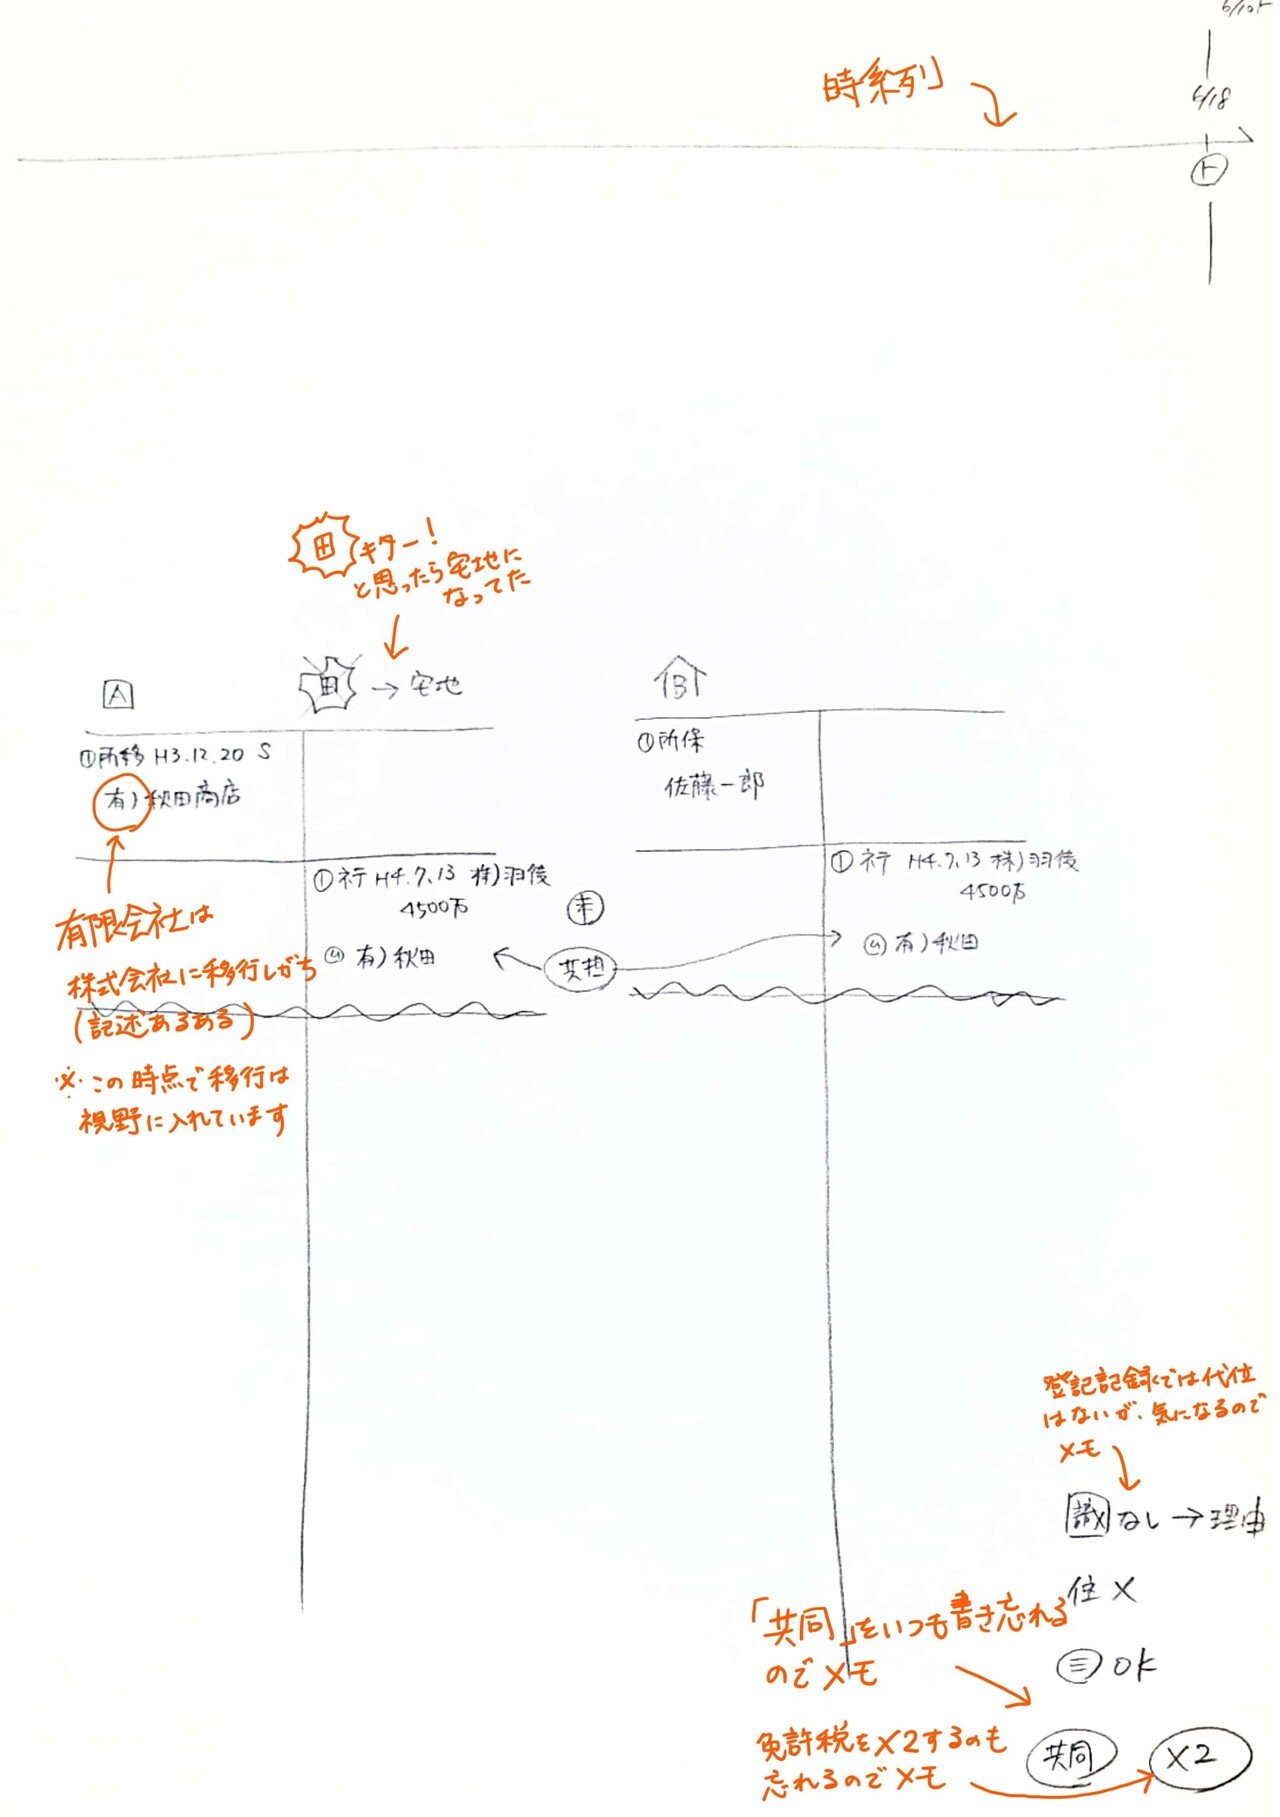 時系列
6/18
ト
田 キター!
と思ったら宅地に
なってた
A
田 → 宅地
B
①所移 H3.12.20 S
有)秋田商店
①所保
佐藤一郎
①ネテ H4.7.13 株)羽後
4500万
有)秋田
共担
①ネテ H4.7.13 株)羽後
4500万
有)秋田
有限会社は
株式会社に移行しがち
(記述あるある)
※この時点で移行は
視野に入れています
登記記録では代位
はないが、気になるので
メモ
識なし→理由
住×
㊂OK
「共同」をいつも書き忘れる
のでメモ
免許税を×2するのも
忘れるのでメモ
共同
×2